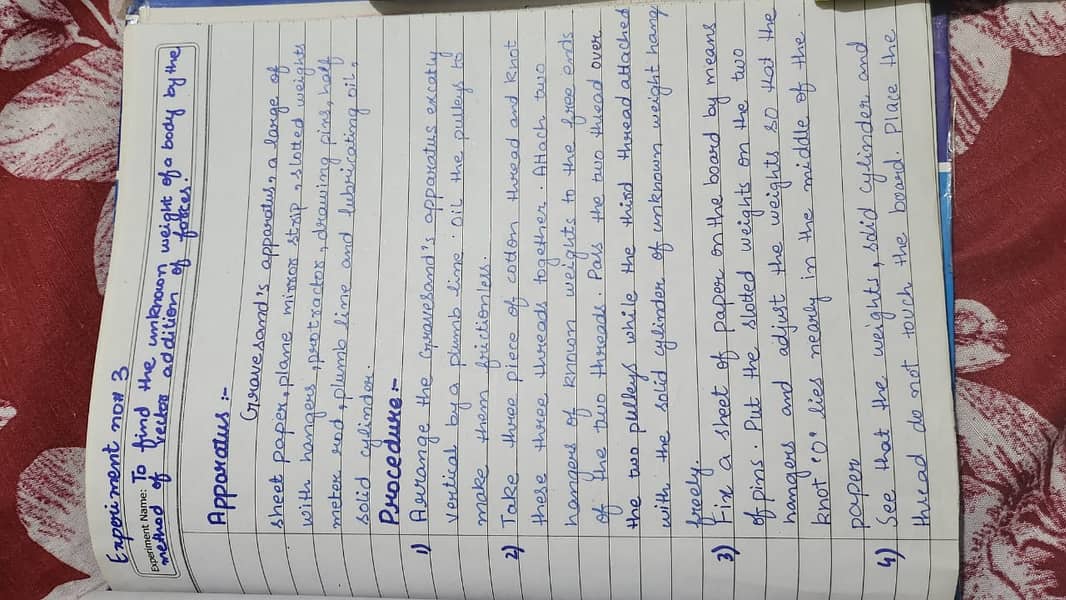 Experiment no# 3
Experiment Name: To find the unknown weight of a body by the
method of vector addition of forces.
Apparatus :-
Gravesand's apparatus, a large of
sheet paper, plane mirror strip, slotted weights
with hangers, protractor, drawing pins, half
meter rod, plumb line and lubricating oil,
solid cylinder.
Procedure :-
1) Arrange the Gravesand's apparatus excatly
vertical by a plumb line. oil the pulleys to
make them frictionless.
2) Take three piece of cotton thread and knot
these three threads together. Attach two
hangers of known weights to the free ends
of the two threads. Pass the two thread over
the two pulleys while the third thread attached
with the solid cylinder of unknown weight hang
freely.
3) Fix a sheet of paper on the board by means
of pins. Put the slotted weights on the two
hangers and adjust the weights so that the
knot "O" lies nearly in the middle of the.
paper
4) See that the weights, solid cylinder and
thread do not touch the board. Place the